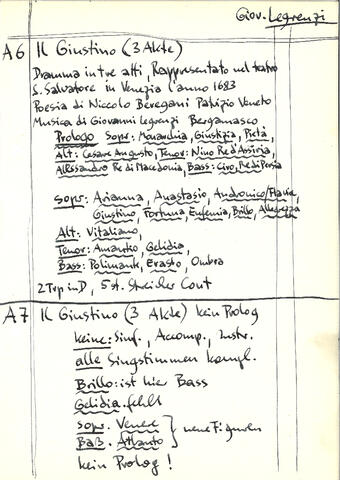 Giov. Legrenzi
A6 Il Giustino (3 Akte)
Dramma in tre atti, Rappresentato nel teatro
S. Salvatore in Venezia l'anno 1683
Poesia di Niccolo Beregani Patrizio Veneto
Musica di Giovanni Legrenzi Bergamasco
Prologo Sopr: Monarchia, Giustizia, Pietà,
Alt: Cesare Augusto, Tenor: Nino Re d'Assiria,
Alessandro Re di Macedonia, Bass: Ciro, Re di Persia
Sopr: Arianna, Anastasio, Andronico/Flavia,
Giustino, Fortuna, Eufemia, Brillo, Allegrezza
Alt: Vitaliano,
Tenor: Amantio, Gelidia,
Bass: Polimante, Erasto, Ombra
2 Trp in D, 5 st. Streicher Cont
A7 Il Giustino (3 Akte) kein Prolog
keine: Sinf., Accomp., Instr.
alle Singstimmen kompl.
Brillo: ist hier Bass
Gelidia fehlt
Sopr. Venere } neue Figuren
Baß. Atlante
kein Prolog!